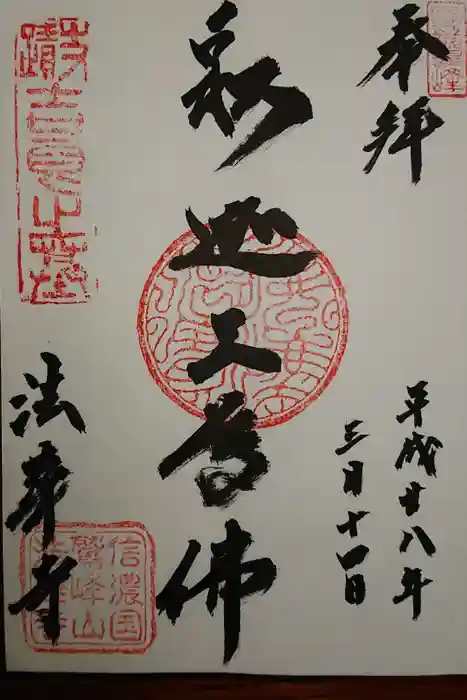 奉拝
平成廿八年
三月十一日
釈迦三尊佛
法華寺
信濃国
鷲峰山
法華寺